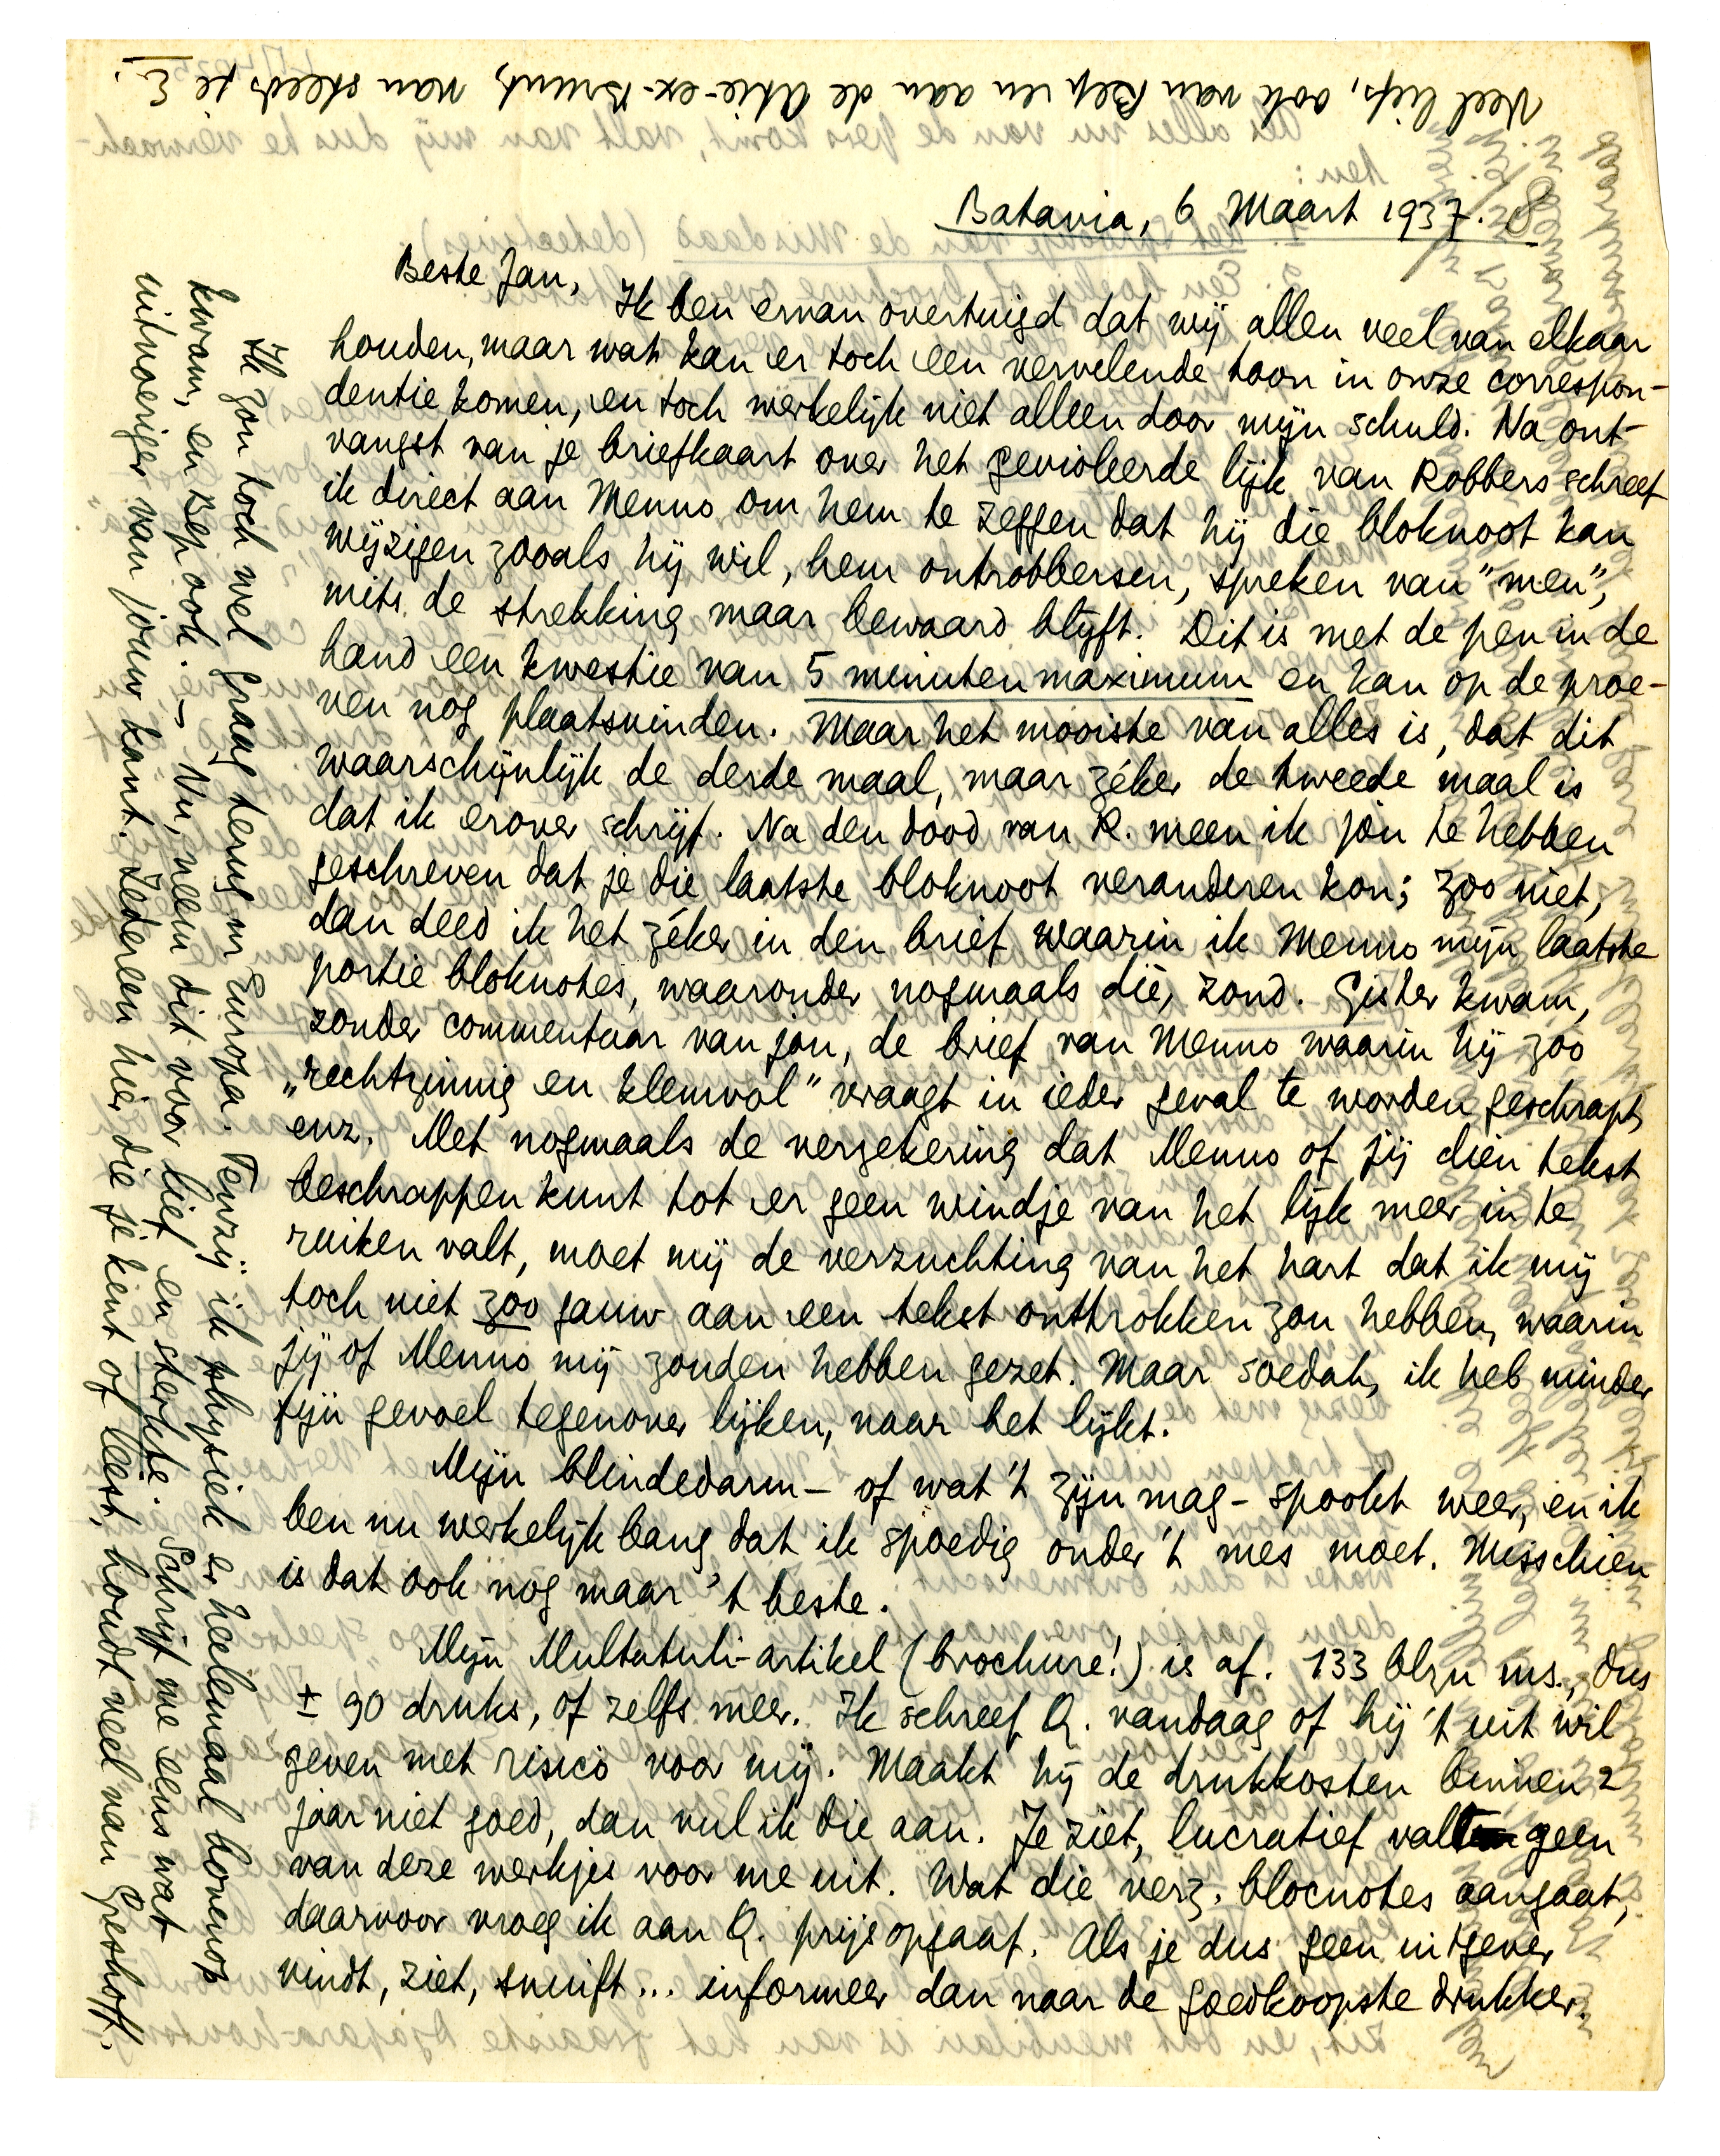 Batavia, 6 Maart 1937. 8
Beste Jan,
Ik ben ervan overtuigd dat wij allen veel van elkaar
houden, maar wat kan er toch een vervelende toon in onze correspon-
dentie komen, en toch werkelijk niet alleen door mijn schuld. Na ont-
vangst van je briefkaart over het gevioleerde lijk van Robbers schreef
ik direct aan Menno om hem te zeggen dat hij die bloknoot kan
wijzigen zooals hij wil, hem ontrobbersen, spreken van "men",
mits de strekking maar bewaard blijft. Dit is met de pen in de
hand een kwestie van 5 minuten maximum en kan op de proe-
ven nog plaatsvinden. Maar het mooiste van alles is, dat dit
waarschijnlijk de derde maal, maar zéker de tweede maal is
dat ik erover schrijf. Na den dood van R. meen ik jou te hebben
geschreven dat je die laatste bloknoot veranderen kon; zoo niet,
dan deed ik het zéker in den brief waarin ik Menno mijn laatste
portie bloknotes, waaronder nogmaals die, zond. Gister kwam,
zonder commentaar van jou, de brief van Menno waarin hij zoo
„rechtzinnig en klemvol" vraagt in ieder geval te worden geschrapt,
enz. Met nogmaals de verzekering dat Menno of jij dien tekst
beschrappen kunt tot er geen windje van het lijk meer in te
ruiken valt, moet mij de verzuchting van het hart dat ik mij
toch niet zoo gauw aan een tekst onttrokken zou hebben, waarin
jij of Menno mij zouden hebben gezet. Maar soedah, ik heb minder
fijn gevoel tegenover lijken, naar het lijkt.
Mijn blindedarm – of wat 't zijn mag – spookt weer, en ik
ben nu werkelijk bang dat ik spoedig onder 't mes moet. Misschien
is dat ook nog maar 't beste.
Mijn Multatuli-artikel (brochure!) is af. 133 blzn ms., dus
± 90 druks, of zelfs meer. Ik schreef Q. vandaag of hij 't uit wil
geven met risico voor mij. Maakt hij de drukkosten binnen 2
jaar niet goed, dan vul ik die aan. Je ziet, lucratief valt geen
van deze werkjes voor me uit. Wat die verz. blocnotes aangaat,
daarvoor vroeg ik aan Q. prijsopgaaf. Als je dus geen uitgever
vindt, ziet, snuift... informeer dan naar de goedkoopste drukker.
Ik zou toch wel graag terug in Europa. Tenzij ik physiek er heelemaal bovenop
kwam, en Bep ook. – Nu, neem dit voor lief en sterkte. Schrijf me eens wat
uitvoeriger van jouw kant. Iedereen hier die je kent of leest, houdt veel van Greshoff.
Veel liefs, ook van Bep en aan de Atie-ex-Brunt, van steeds je E.